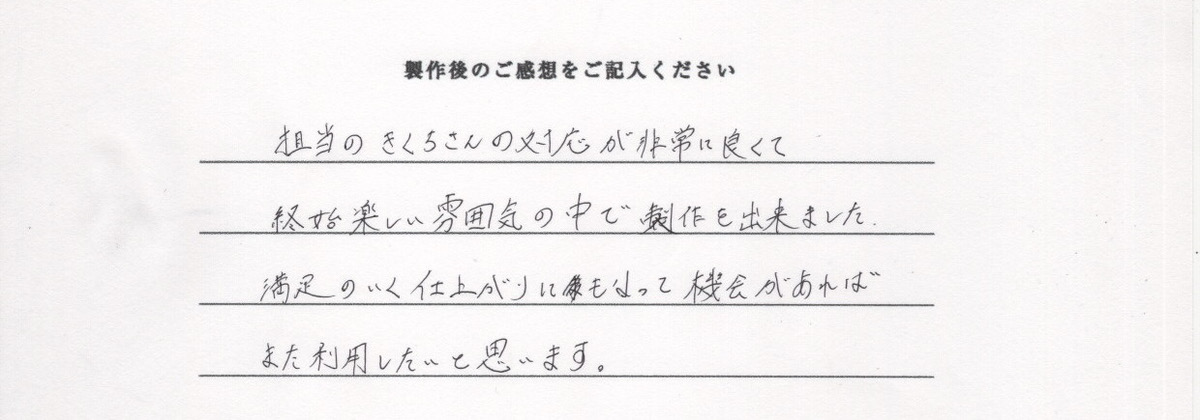 製作後のご感想をご記入ください
担当のきくちさんの対応が非常に良くて
終始楽しい雰囲気の中で製作を出来ました.
満足のいく仕上がりにもなって機会があれば
また利用したいと思います。